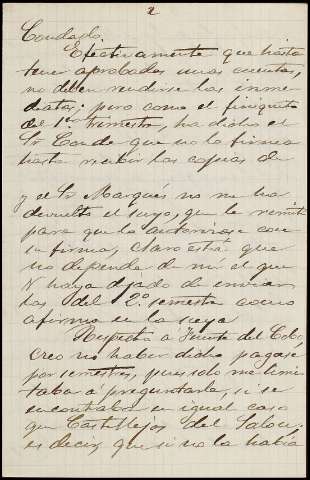 2
Condado.
Efectivamente que hasta
tener aprobadas unas cuentas,
no deben rendirse las inme
diatas; pero como el finiquito
del 1er trimestre, ha dicho el
Sr Conde que no lo firma
hasta recibir las copias de
y el Sr Marqués no me ha
devuelto el suyo, que le remití
para que lo autorizase con
su firma, claro está que
no dependa de mí el que
V haya dejado de enviar
las del 2.o semestre como
afirma en la suya
Respecto a Fuente del Cobo,
creo no haber dicho pagase
por semestres, pues solo me limi
taba á preguntarle, si se
encontraba en igual caso
que Castillejos del Salou,
es decir, que si no la había